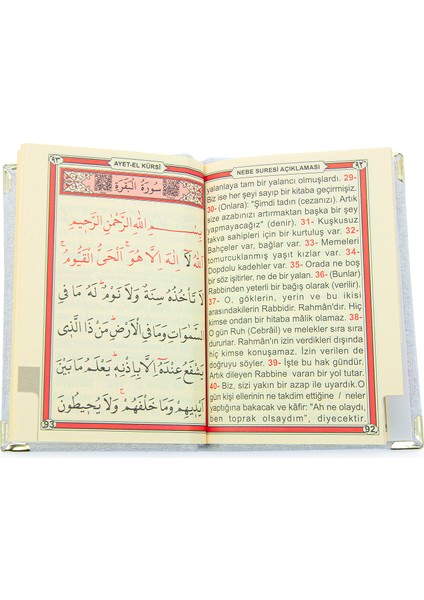 ٩٣
AYET-EL KÜRSİ
سُورَةُ الْبَقَرَةِ
بِسْمِ اللّٰهِ الرَّحْمٰنِ الرَّحِيمِ
اَللّٰهُ لَٓا اِلٰهَ اِلَّا هُوَۚ اَلْحَيُّ الْقَيُّومُۚ
لَا تَأْخُذُهُ سِنَةٌ وَلَا نَوْمٌۜ لَهُ مَا فِي
السَّمٰوَاتِ وَمَا فِي الْاَرْضِۜ مَنْ ذَا الَّذ۪ي
يَشْفَعُ عِنْدَهُٓ اِلَّا بِاِذْنِه۪ۜ يَعْلَمُ مَا بَيْنَ
اَيْد۪يهِمْ وَمَا خَلْفَهُمْۚ وَلَا يُح۪يطُونَ
93
NEBE SURESİ AÇIKLAMASI
٩٢
yalanlaya tam bir yalancı olmuşlardı. 29-
Biz ise her şeyi sayıp bir kitaba geçirmişiz.
30- (Onlara): "Şimdi tadın (cezanızı). Artık
size azabınızı artırmaktan başka bir şey
yapmayacağız" (denir). 31- Kuşkusuz
takva sahipleri için bir kurtuluş var. 32-
Bahçeler var, bağlar var. 33- Memeleri
tomurcuklanmış yaşıt kızlar var. 34-
Dopdolu kadehler var. 35- Orada ne boş
bir söz işitirler, ne de bir yalan. 36- (Bunlar)
Rabbinden yeterli bir bağış olarak (verilir).
37- O, göklerin, yerin ve bu ikisi
arasındakilerin Rabbidir. Rahmân'dır. Hiç
kimse ondan bir hitaba mâlik olamaz. 38-
O gün Ruh (Cebrâil) ve melekler sıra sıra
dururlar. Rahmân'ın izin verdikleri dışında
hiç kimse konuşamaz. İzin verilen de
doğruyu söyler. 39- İşte bu hak gündür.
Artık dileyen Rabbine varan bir yol tutar.
40- Biz, sizi yakın bir azap ile uyardık.O
gün kişi ellerinin ne takdim ettiğine / neler
yaptığına bakacak ve kâfir: "Ah ne olaydı,
ben toprak olsaydım", diyecektir.
92